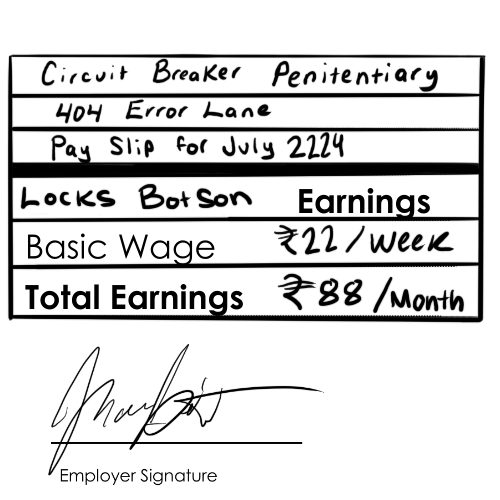 Circuit Breaker Penitentiary
404 Error Lane
Pay Slip for July 2224
Locks Botson Earnings
Basic Wage ₹22/week
Total Earnings ₹88/Month
Employer Signature